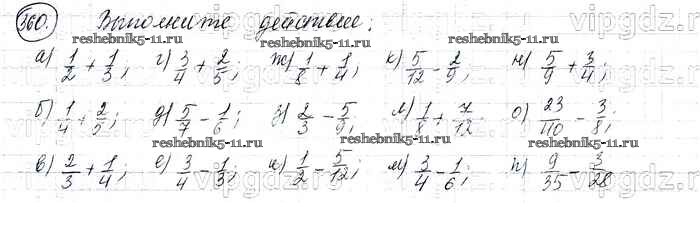 360. Выполните действие:
а) 1/2 + 1/3; г) 3/4 + 2/5; ж) 1/8 + 1/4; к) 5/12 - 2/9; н) 5/9 + 3/4;
б) 1/4 + 2/5; д) 5/7 - 1/6; з) 2/3 - 5/9; л) 1/8 + 7/12; о) 23/40 - 3/8;
в) 2/3 + 1/4; е) 3/4 - 1/3; и) 1/2 - 5/12; м) 3/4 - 1/6; п) 9/35 - 3/28
reshebnik5-11.ru reshebnik5-11.ru
reshebnik5-11.ru reshebnik5-11.ru
reshebnik5-11.ru reshebnik5-11.ru
vipgdz.ru